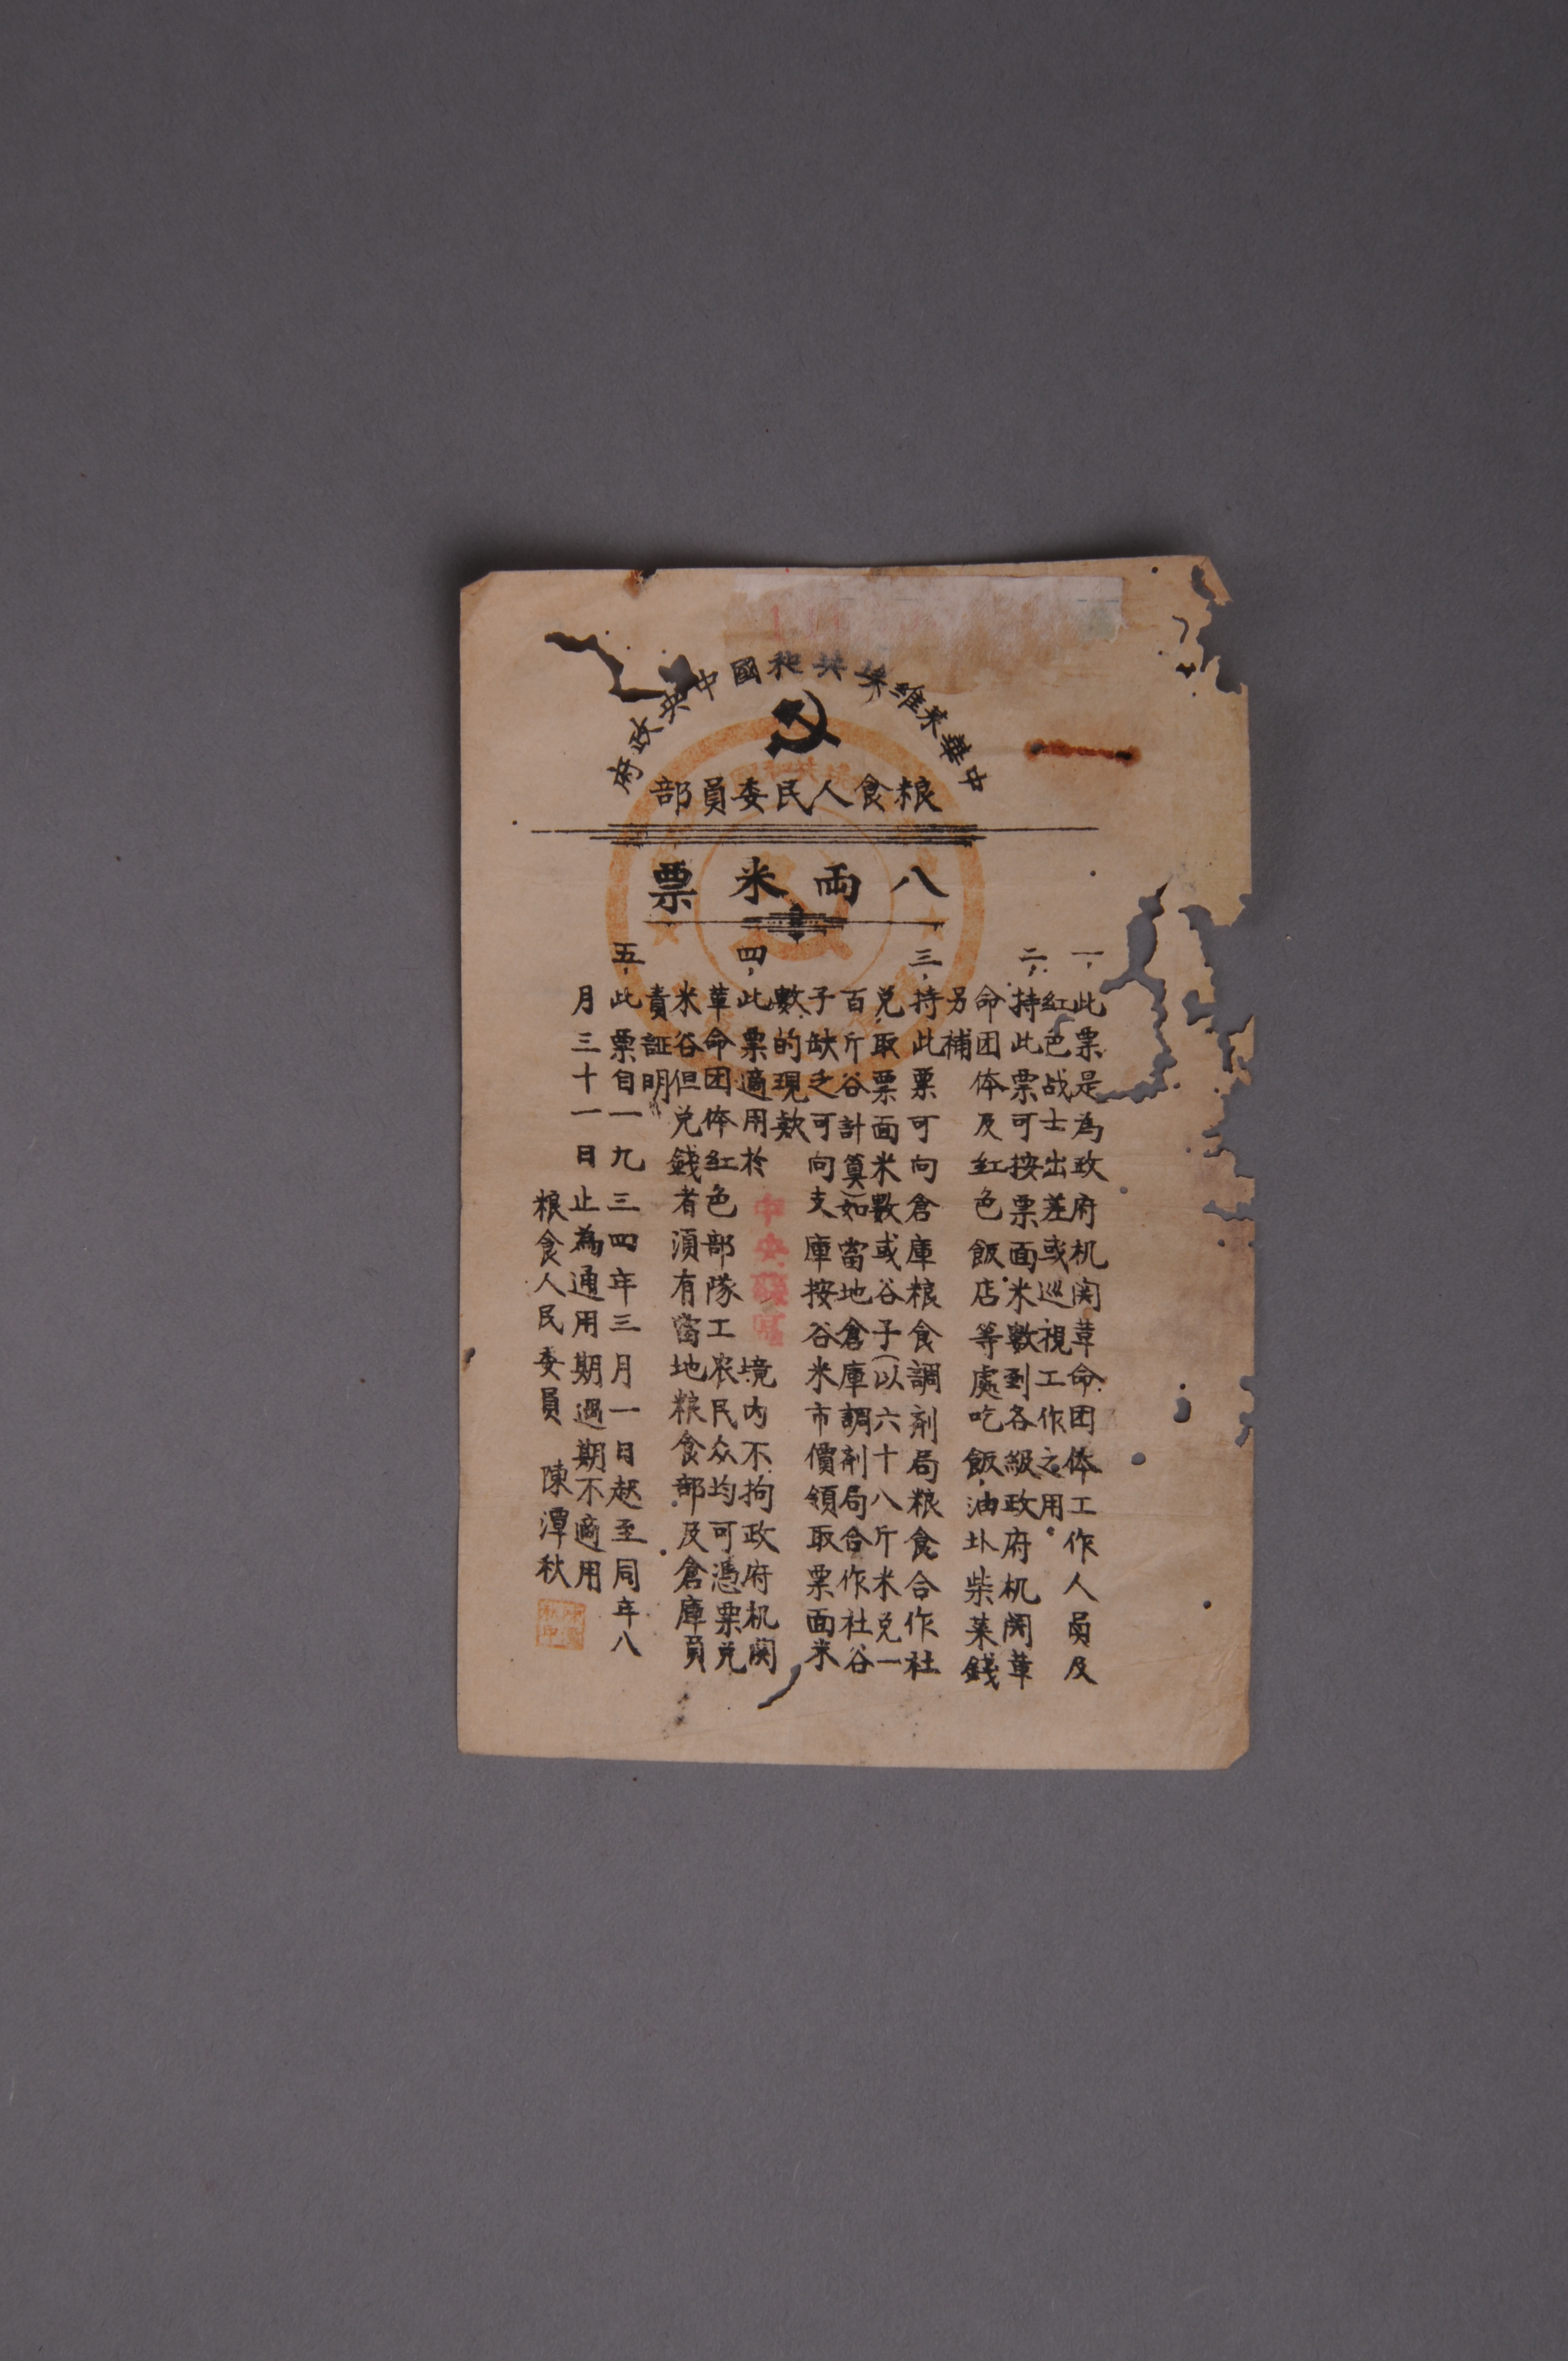 中華苏維埃共和國中央政府
粮食人民委員部
八両米票
一、此票是為政府机関革命团体工作人員及
紅色战士出差或巡視工作之用。
二、持此票可按票面米數到各級政府机関革
命团体及紅色飯店等處吃飯,油圤柴菜錢
另補
三、持此票可向倉庫粮食調剂局粮食合作社
兑取票面米數或谷子(以六十八斤米兑一
百斤谷計算)如當地倉庫調剂局合作社谷
子缺乏可向支庫按谷米市價領取票面米
數的現款
四、此票適用於中央蘇區境内不拘政府机関
革命团体紅色部隊工农民众均可憑票兑
米谷但兑錢者須有當地粮食部及倉庫員
責証明
五、此票自一九三四年三月一日起至同年八
月三十一日止為通用期過期不適用
粮食人民委員 陳潭秋